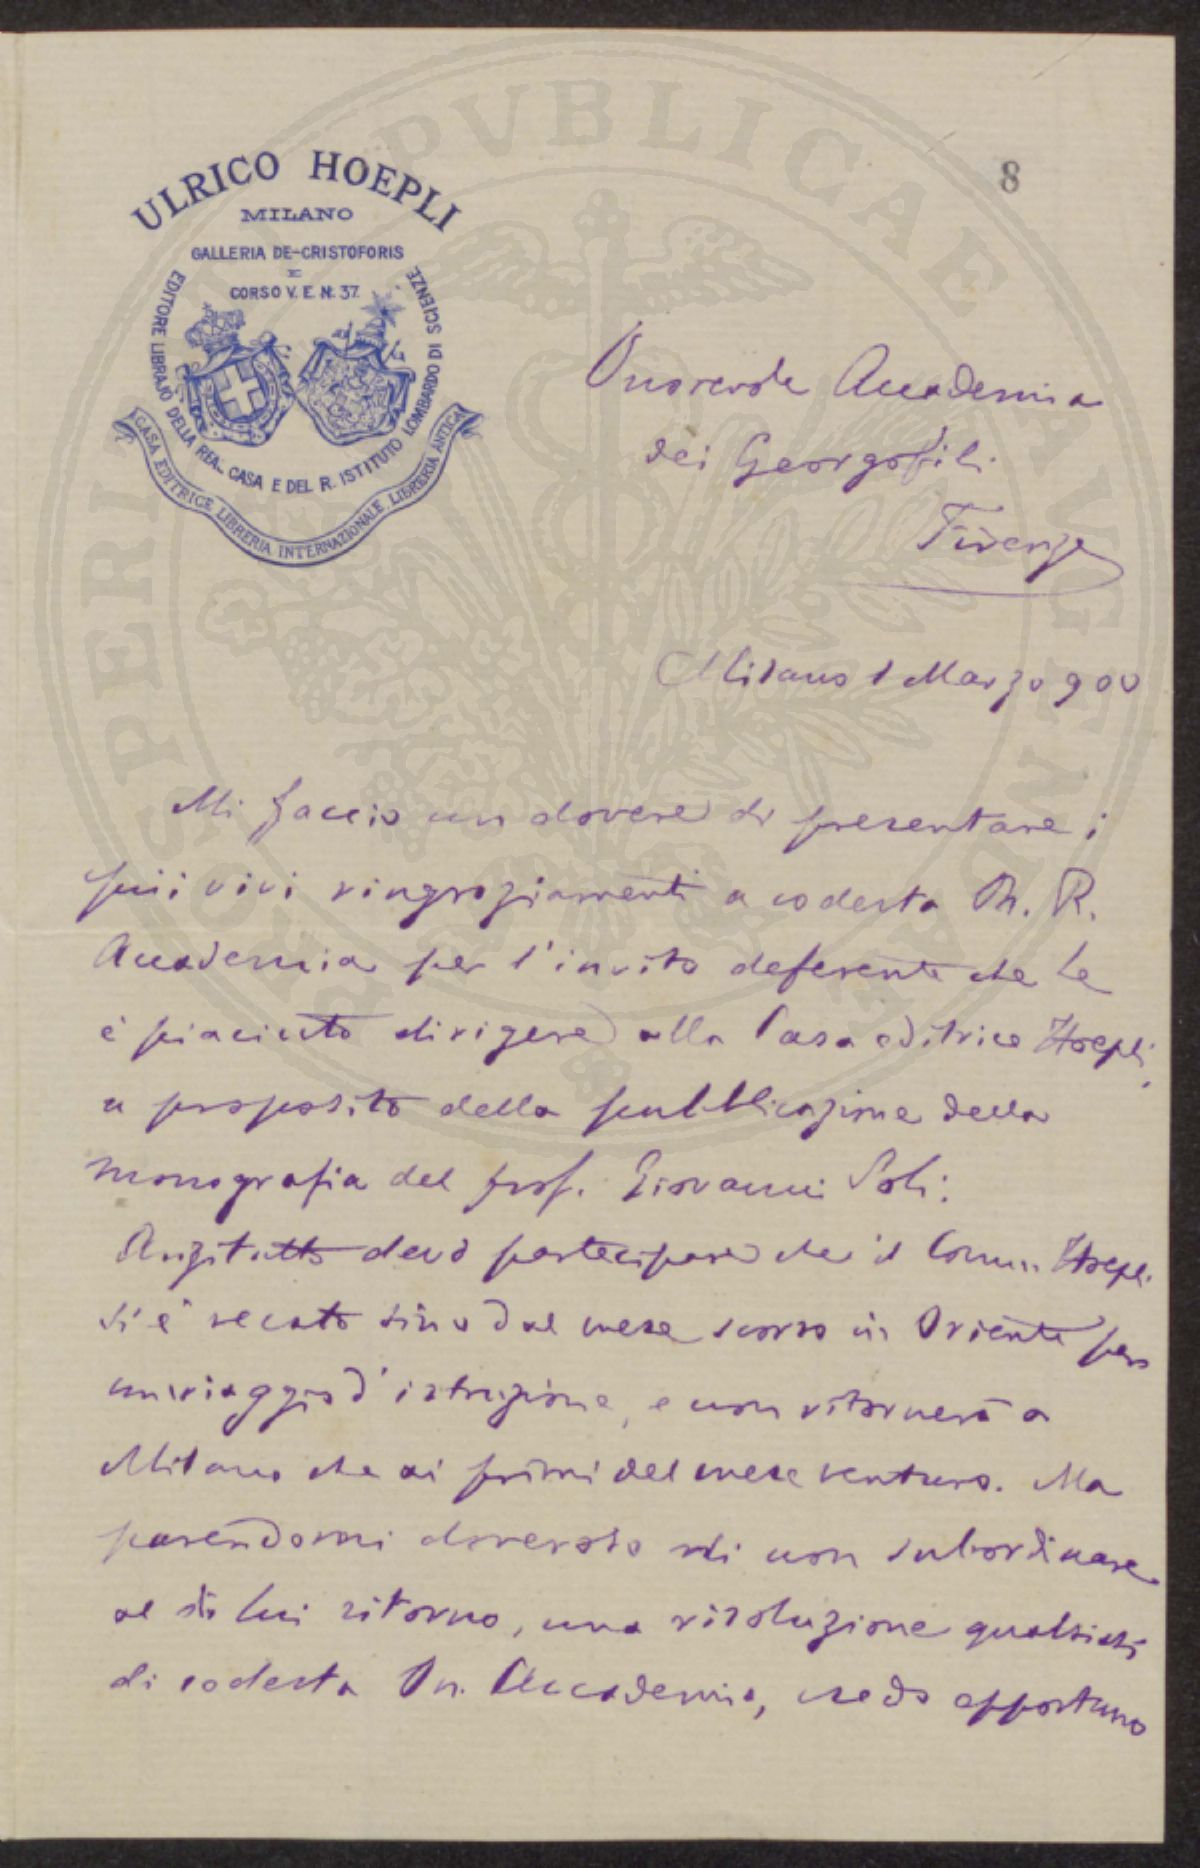 8
ULRICO HOEPLI
MILANO
GALLERIA DE-CRISTOFORIS
E
CORSO V. E. N. 37.
EDITORE LIBRAJO DELLA REAL CASA E DEL R. ISTITUTO LOMBARDO DI SCIENZE
CASA EDITRICE LIBRERIA INTERNAZIONALE LIBRERIA ANTICA
Onorevole Accademia
dei Georgofili
Firenze
Milano 1 Marzo 900
Mi faccio un dovere di presentare i
più vivi ringraziamenti a codesta On. R.
Accademia per l'invito deferente che le
è piaciuto dirigere alla Casa editrice Hoepli,
a proposito della pubblicazione della
monografia del prof. Giovanni Soli.
Anzitutto devo partecipare che il Comm. Hoepli
si è recato sino dal mese scorso in Oriente per
un viaggio d'istruzione, e non ritornerà a
Milano che ai primi del mese venturo. Ma
parendomi doveroso di non subordinare
al di lui ritorno, una risoluzione qualsiasi
di codesta On. Accademia, credo opportuno
PUBLICAE
PROSPERITATI
AUGENDAE